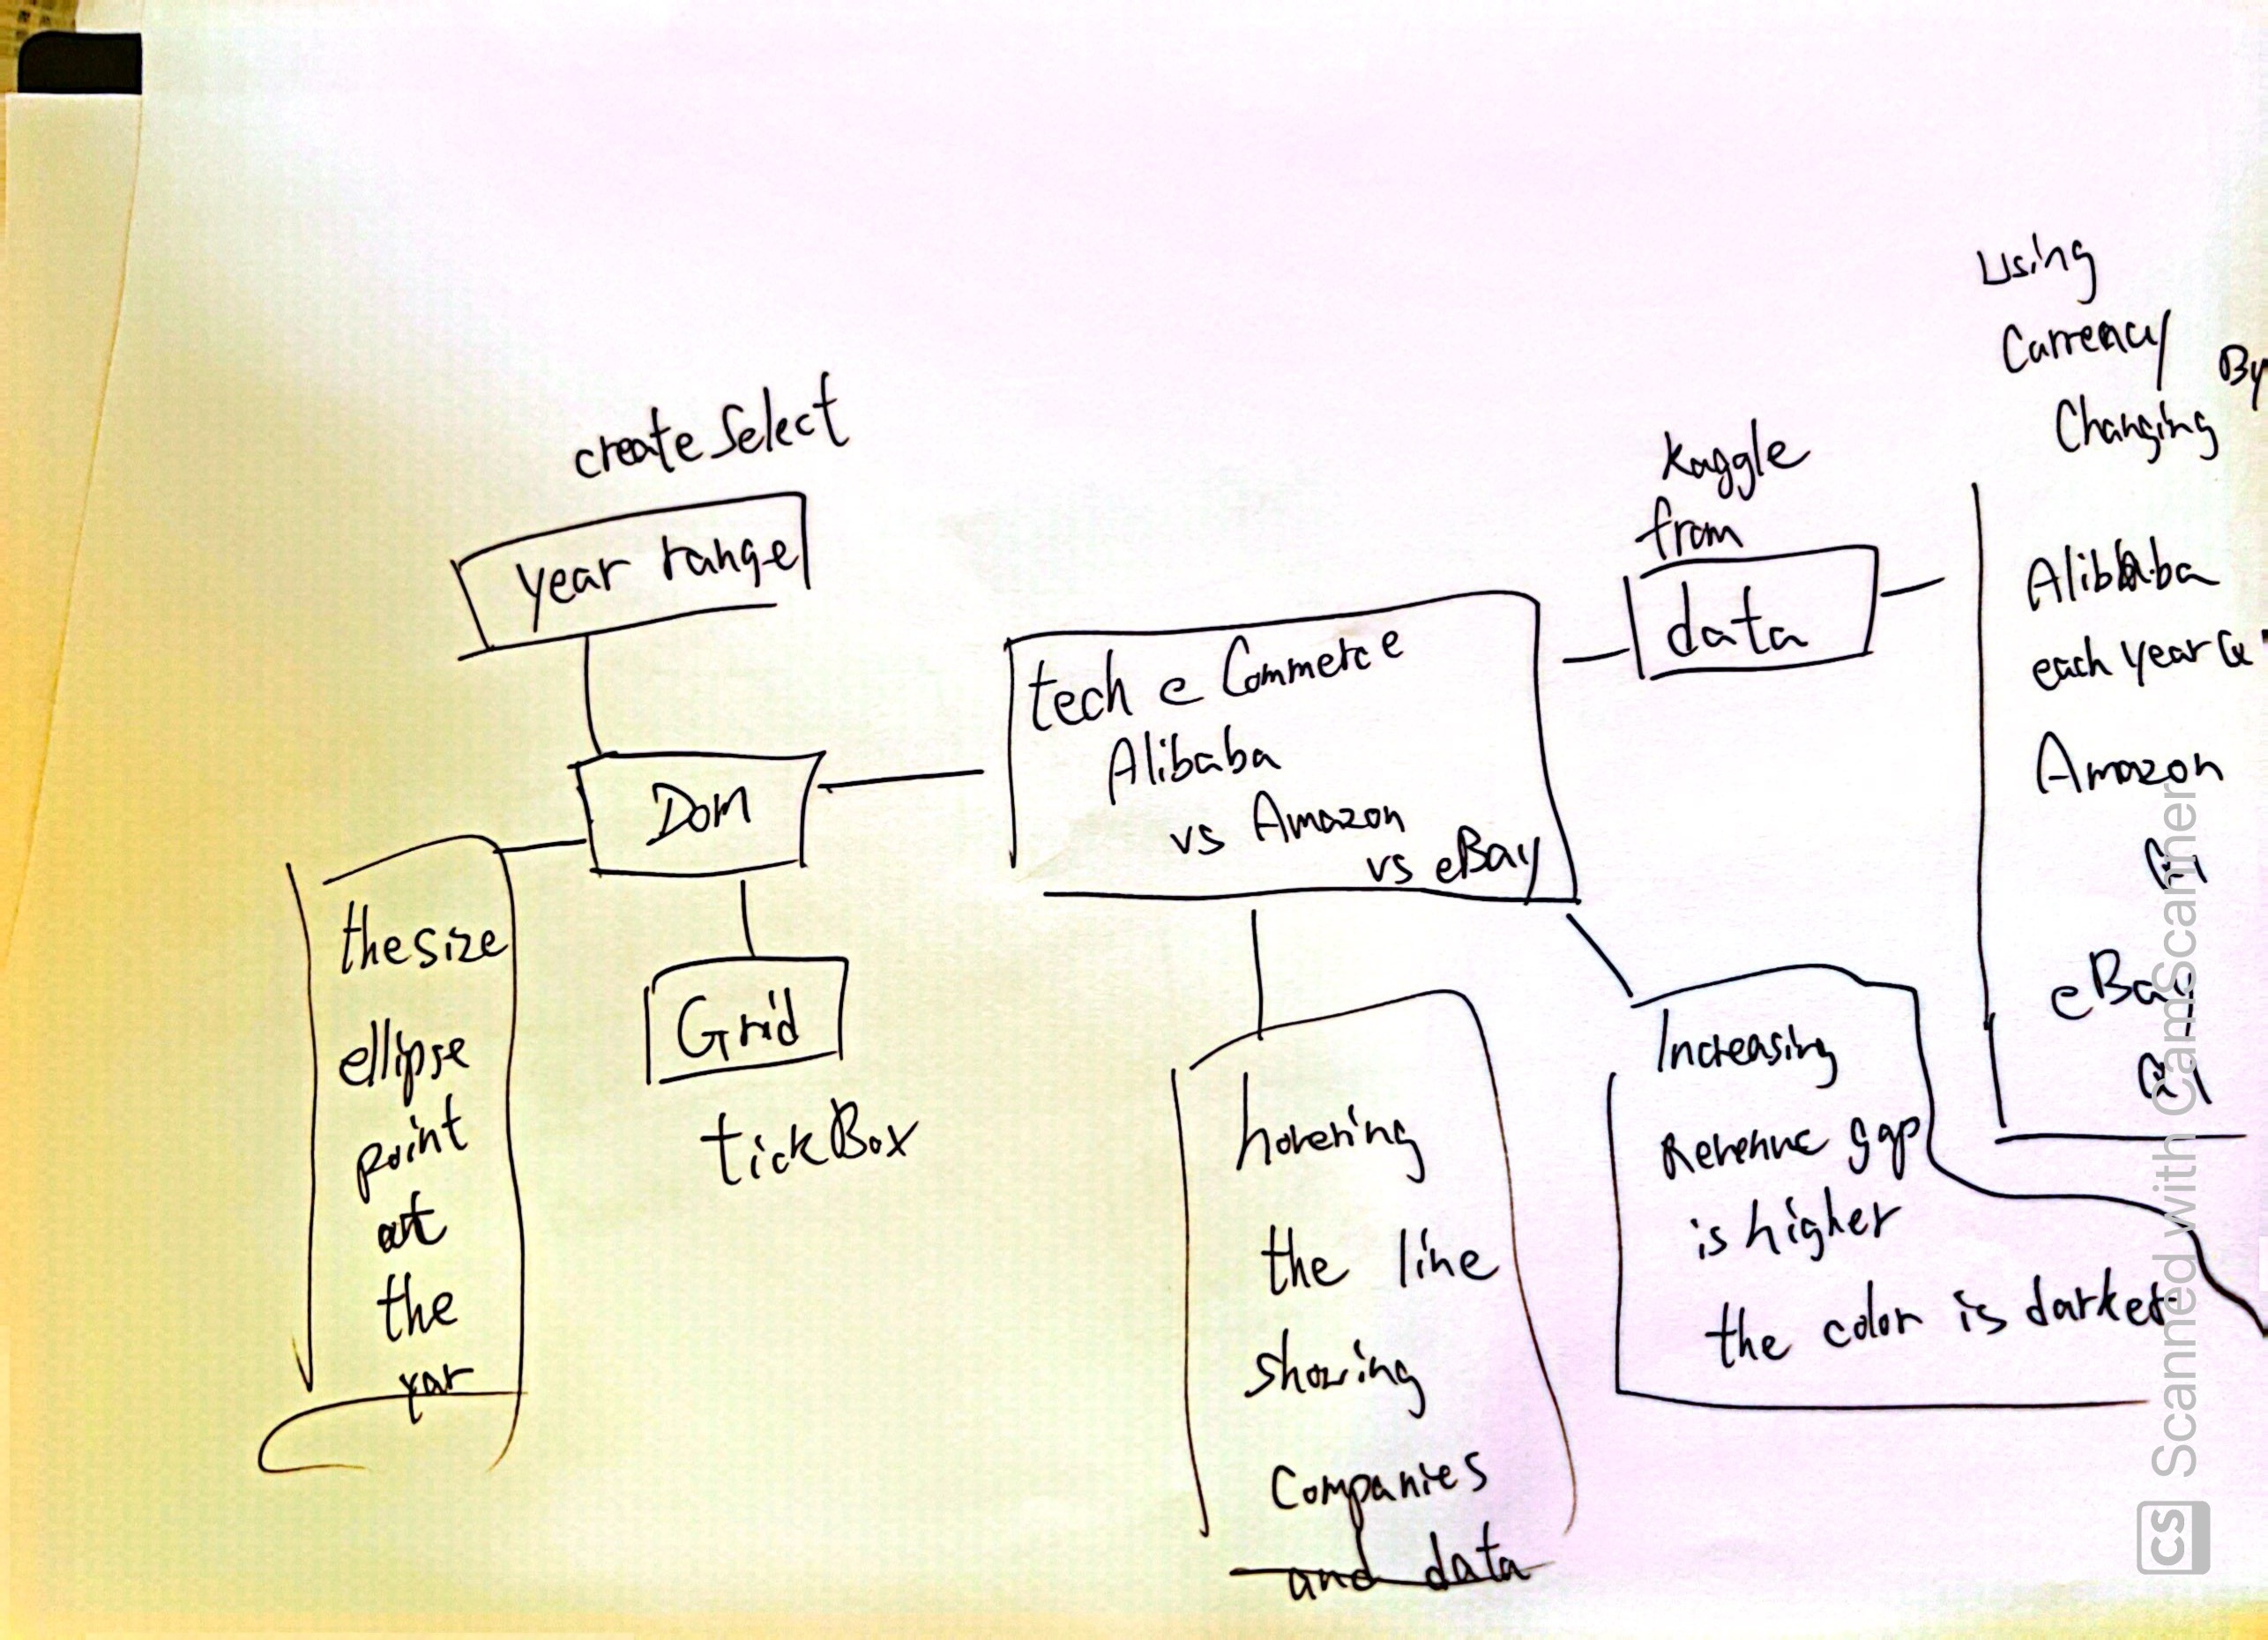 create Select
year range
Dom
the size
ellipse
point
at
the
yar
Grid
tick Box
tech e Commerce
Alibaba
vs Amazon
vs eBay
hovering
the line
showing
Companies
and data
Increasing
Revenue gap
is higher
the color is darker
Kaggle
from
data
Using
Currency
Changing
By
Alibaba
each year Q
Amazon
Q1
eBay
Q1
CS Scanned with CamScanner